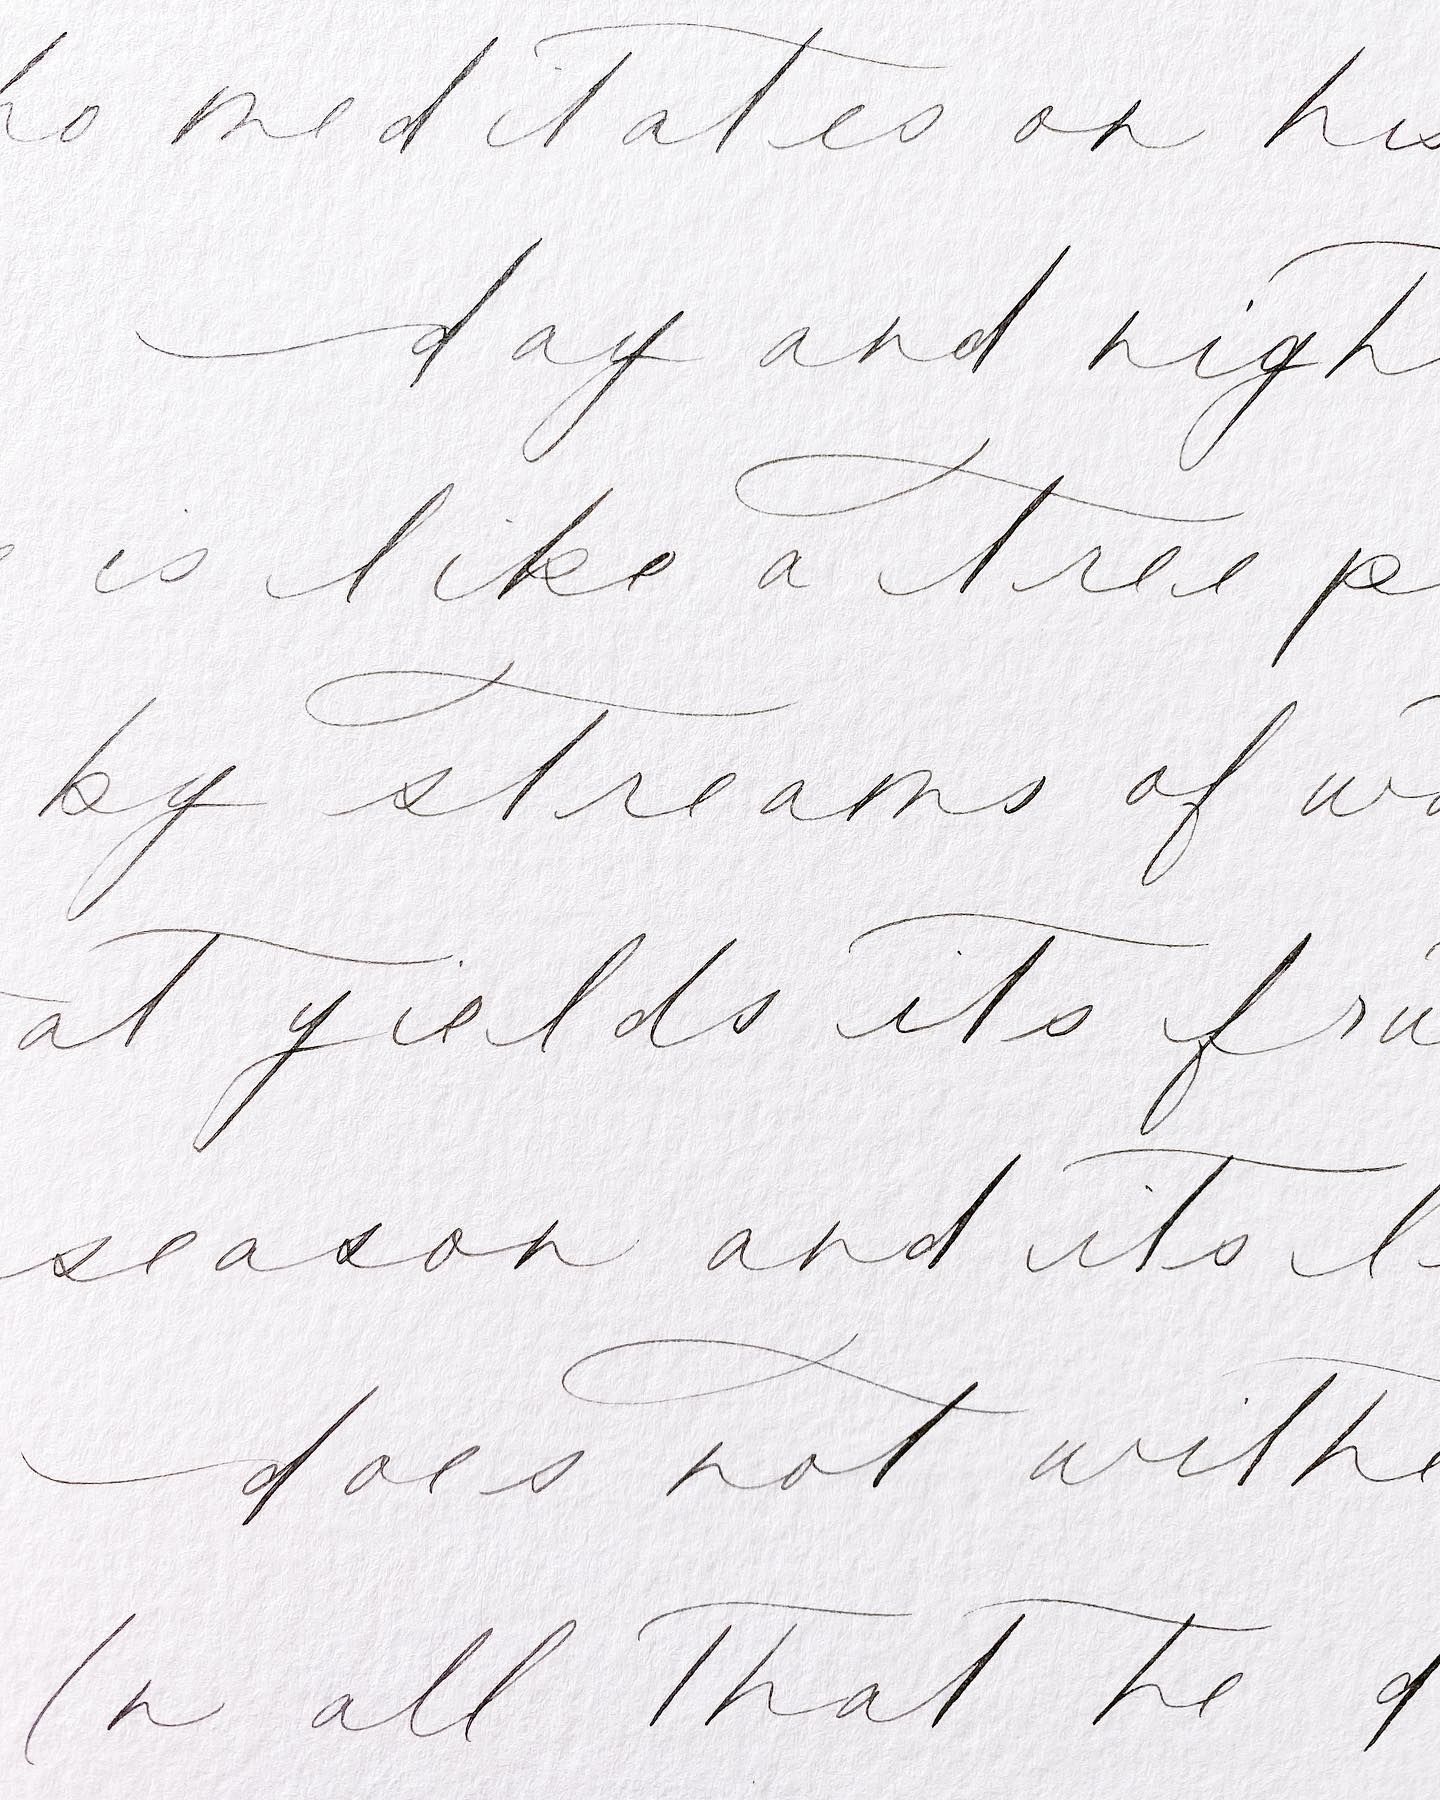 ho meditates on his
day and nigh
e is like a tree p
by streams of wa
at yields its frui
season and its le
does not withe
In all that he d